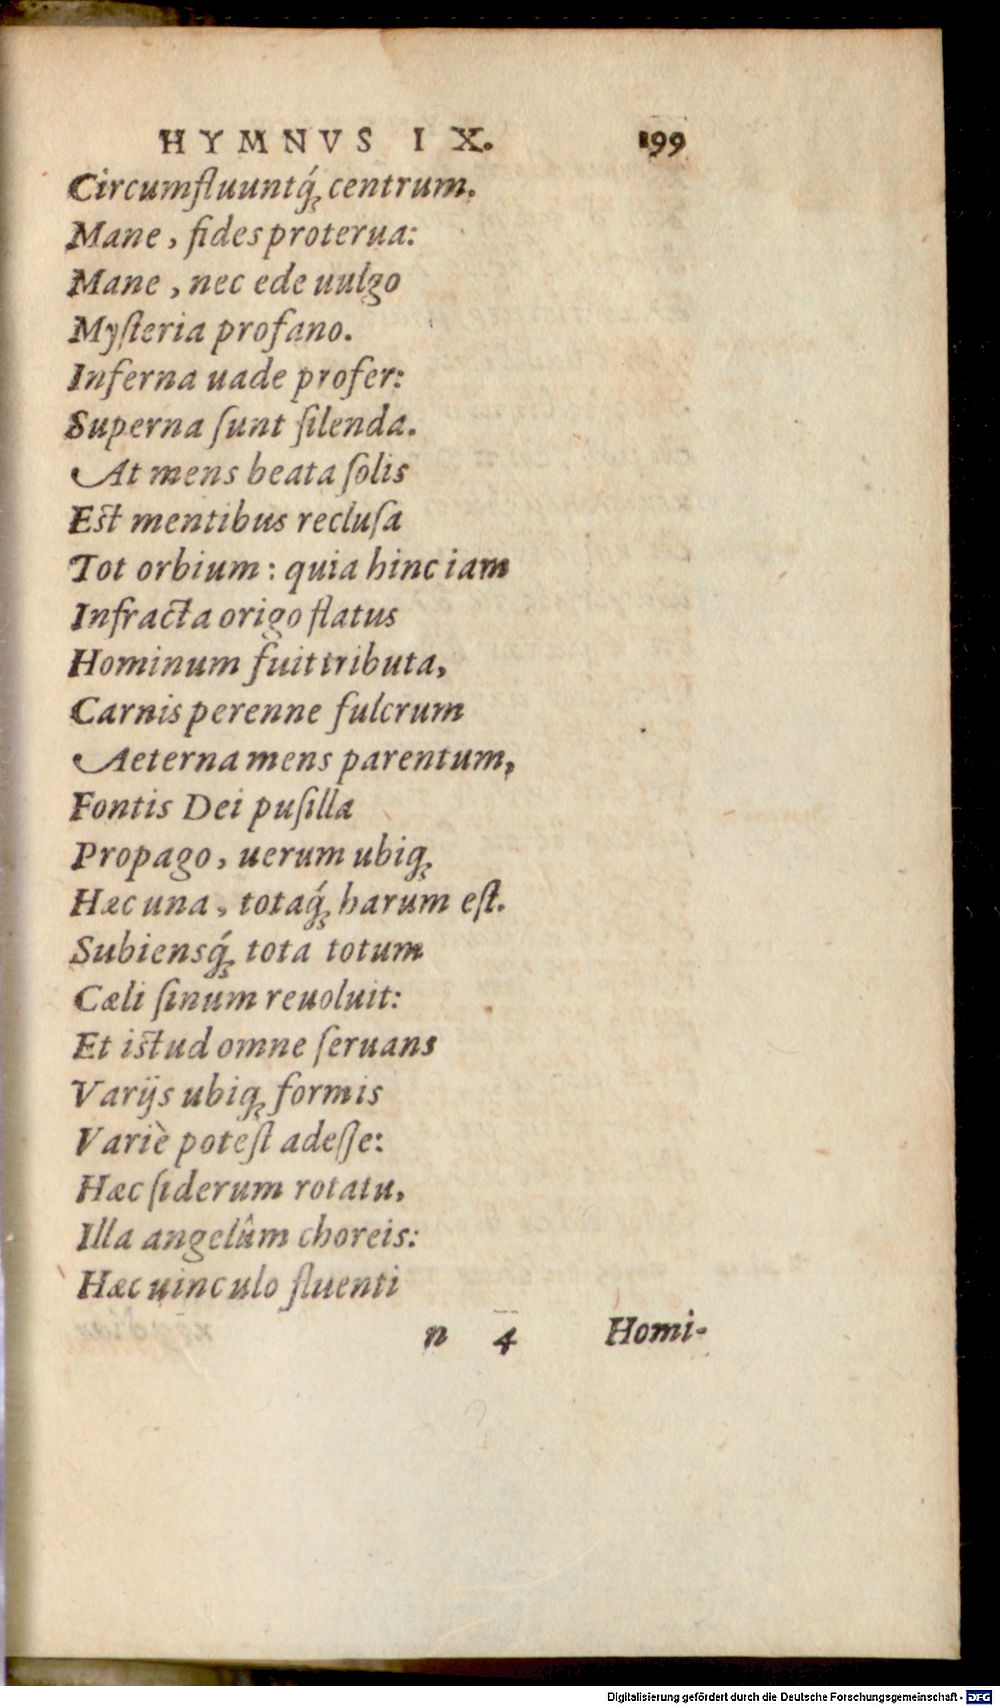 HYMNVS IX. 199
Circumfluuntq́; centrum.
Mane, fides proterua:
Mane, nec ede uulgo
Myſteria profano.
Inferna uade profer:
Superna ſunt ſilenda.
At mens beata ſolis
Eſt mentibus recluſa
Tot orbium: quia hinc iam
Infracta origo flatus
Hominum fuit tributa,
Carnis perenne fulcrum
Aeterna mens parentum,
Fontis Dei puſilla
Propago, uerum ubiq;
Hæc una, totaq́; harum eſt.
Subiensq́; tota totum
Cæli ſinum reuoluit:
Et iſtud omne ſeruans
Varijs ubiq; formis
Variè poteſt adeſſe:
Hæc ſiderum rotatu,
Illa angelûm choreis:
Hæc uinculo fluenti
n 4 Homi-
Digitalisierung gefördert durch die Deutsche Forschungsgemeinschaft - DFG